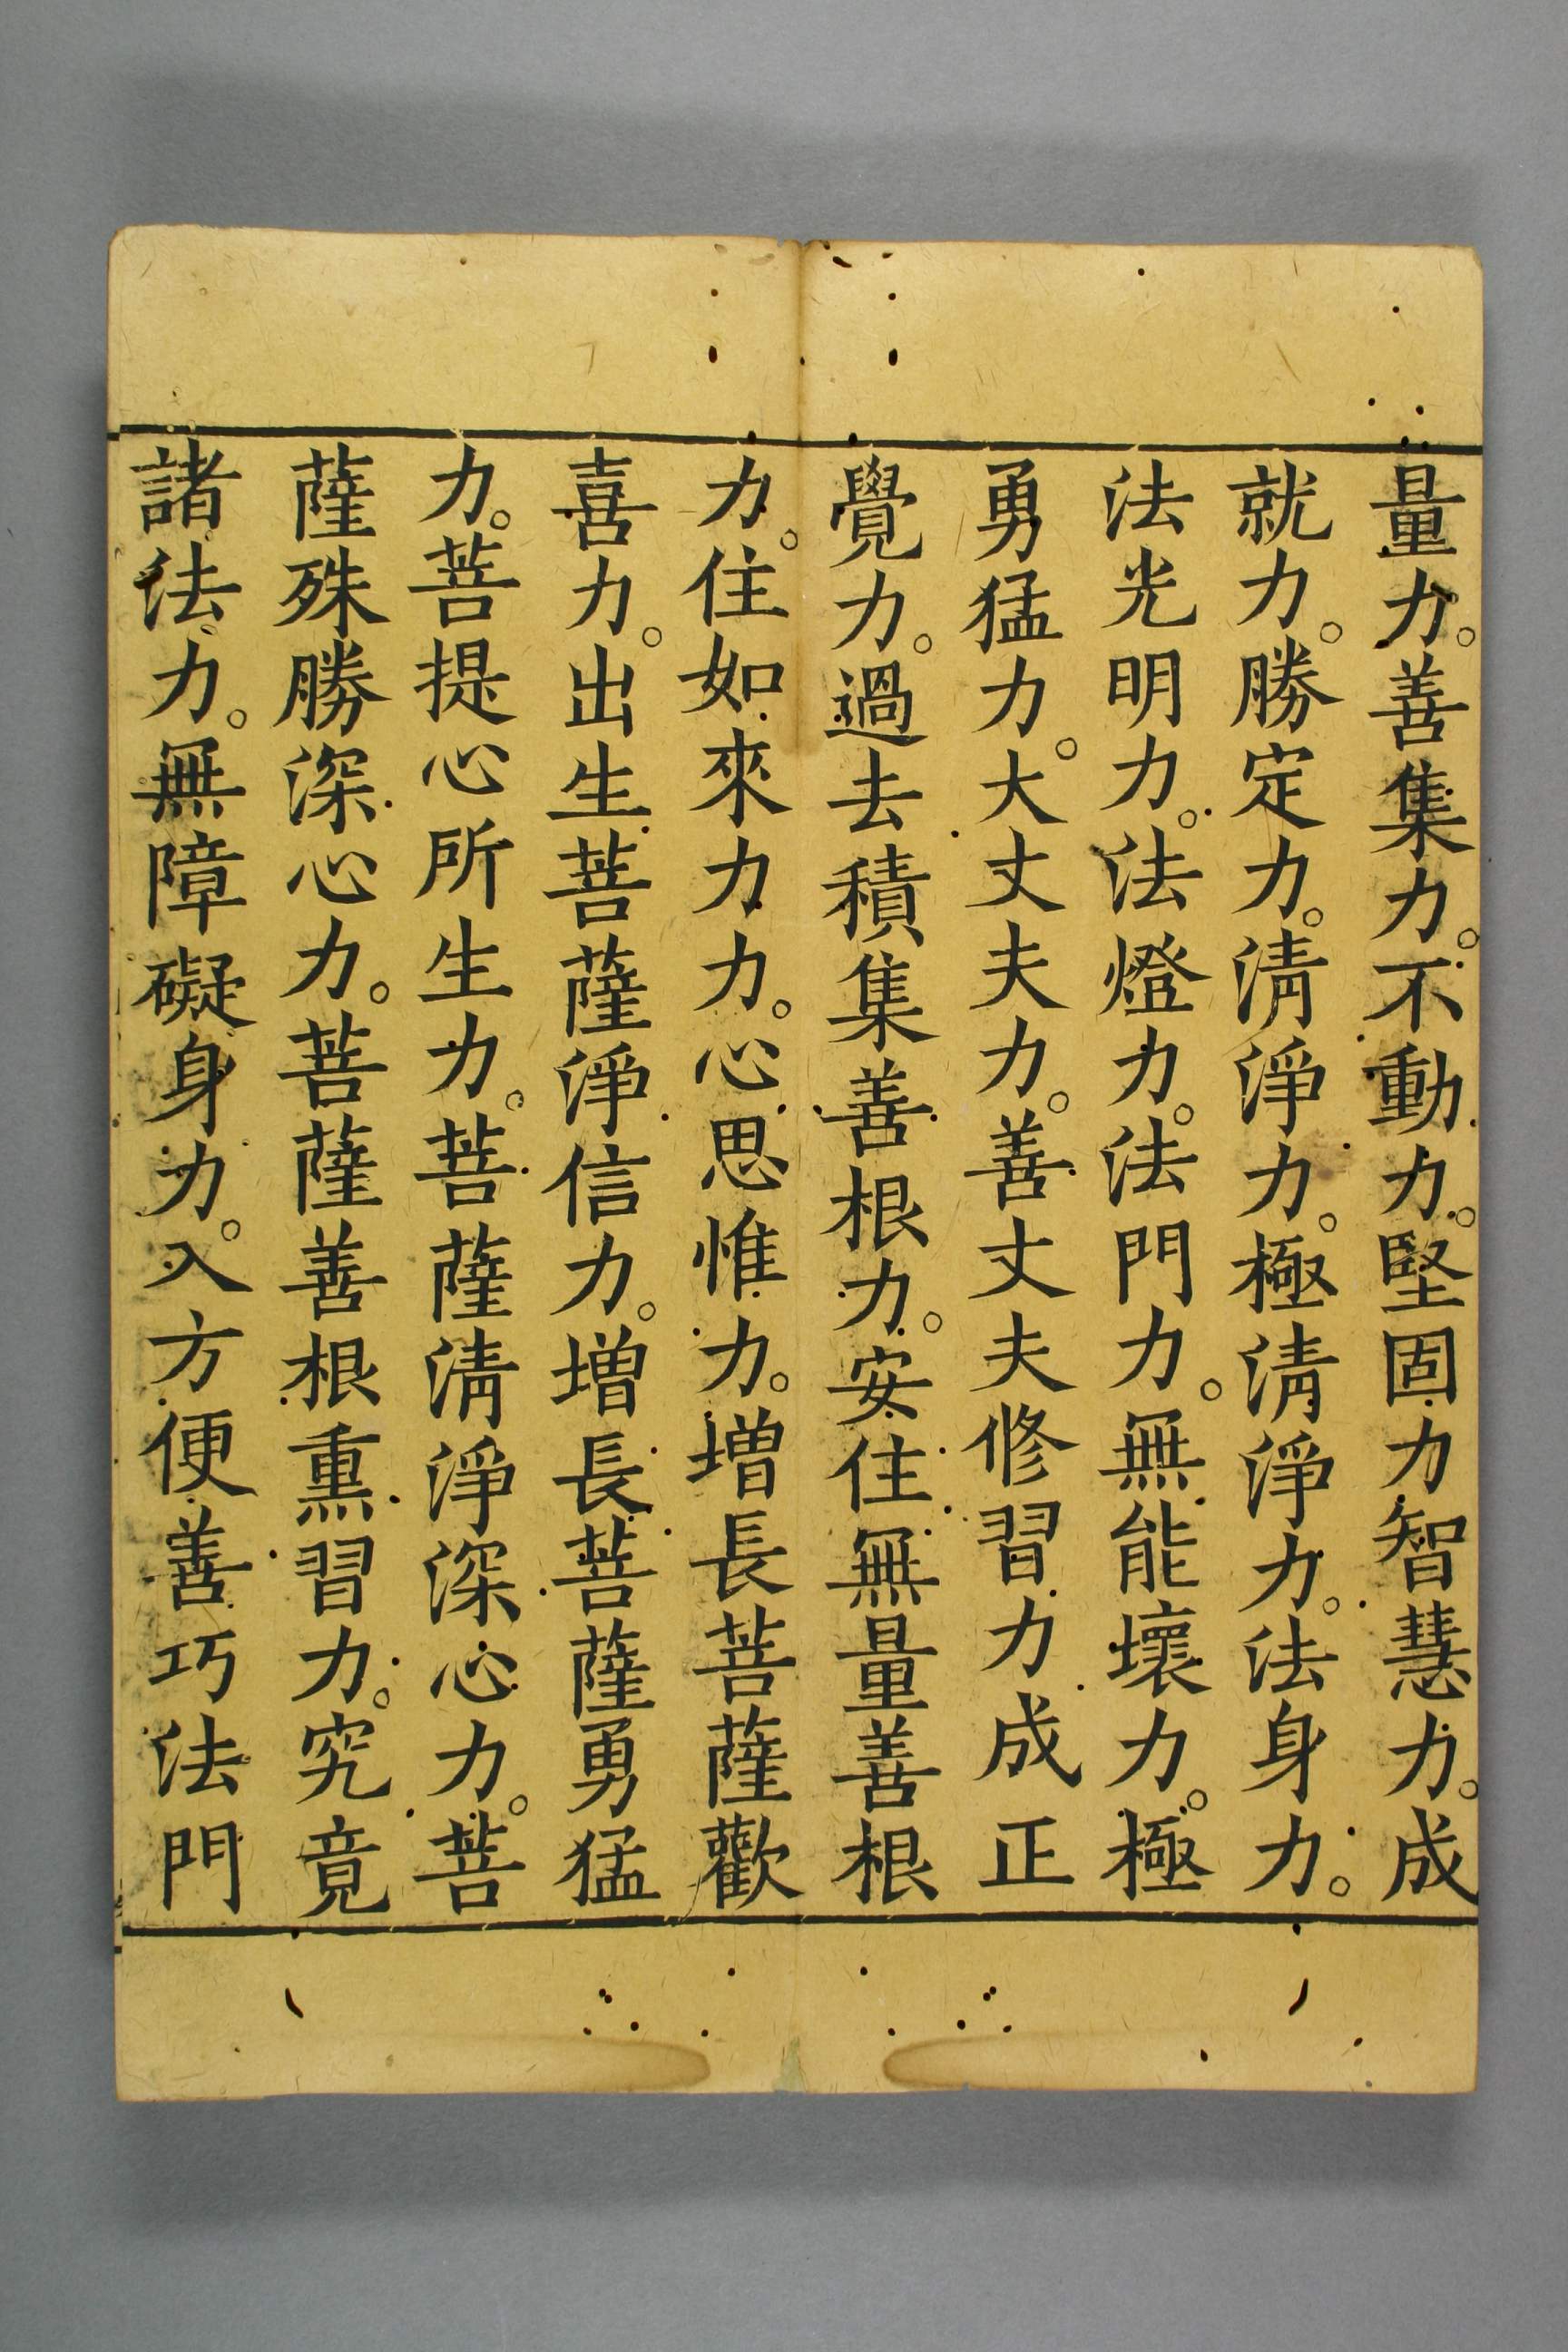 量力。善集力。不動力。堅固力智慧力。成
就力。勝定力。清淨力。極清淨力。法身力。
法光明力。法燈力。法門力。無能壞力。極
勇猛力。大丈夫力。善丈夫修習力成正
覺力。過去積集善根力。安住無量善根
力。住如來力力。心思惟力。增長菩薩歡
喜力。出生菩薩淨信力。增長菩薩勇猛
力。菩提心所生力。菩薩清淨深心力。菩
薩殊勝深心力。菩薩善根熏習力。究竟
諸法力。無障礙身力。入方便善巧法門